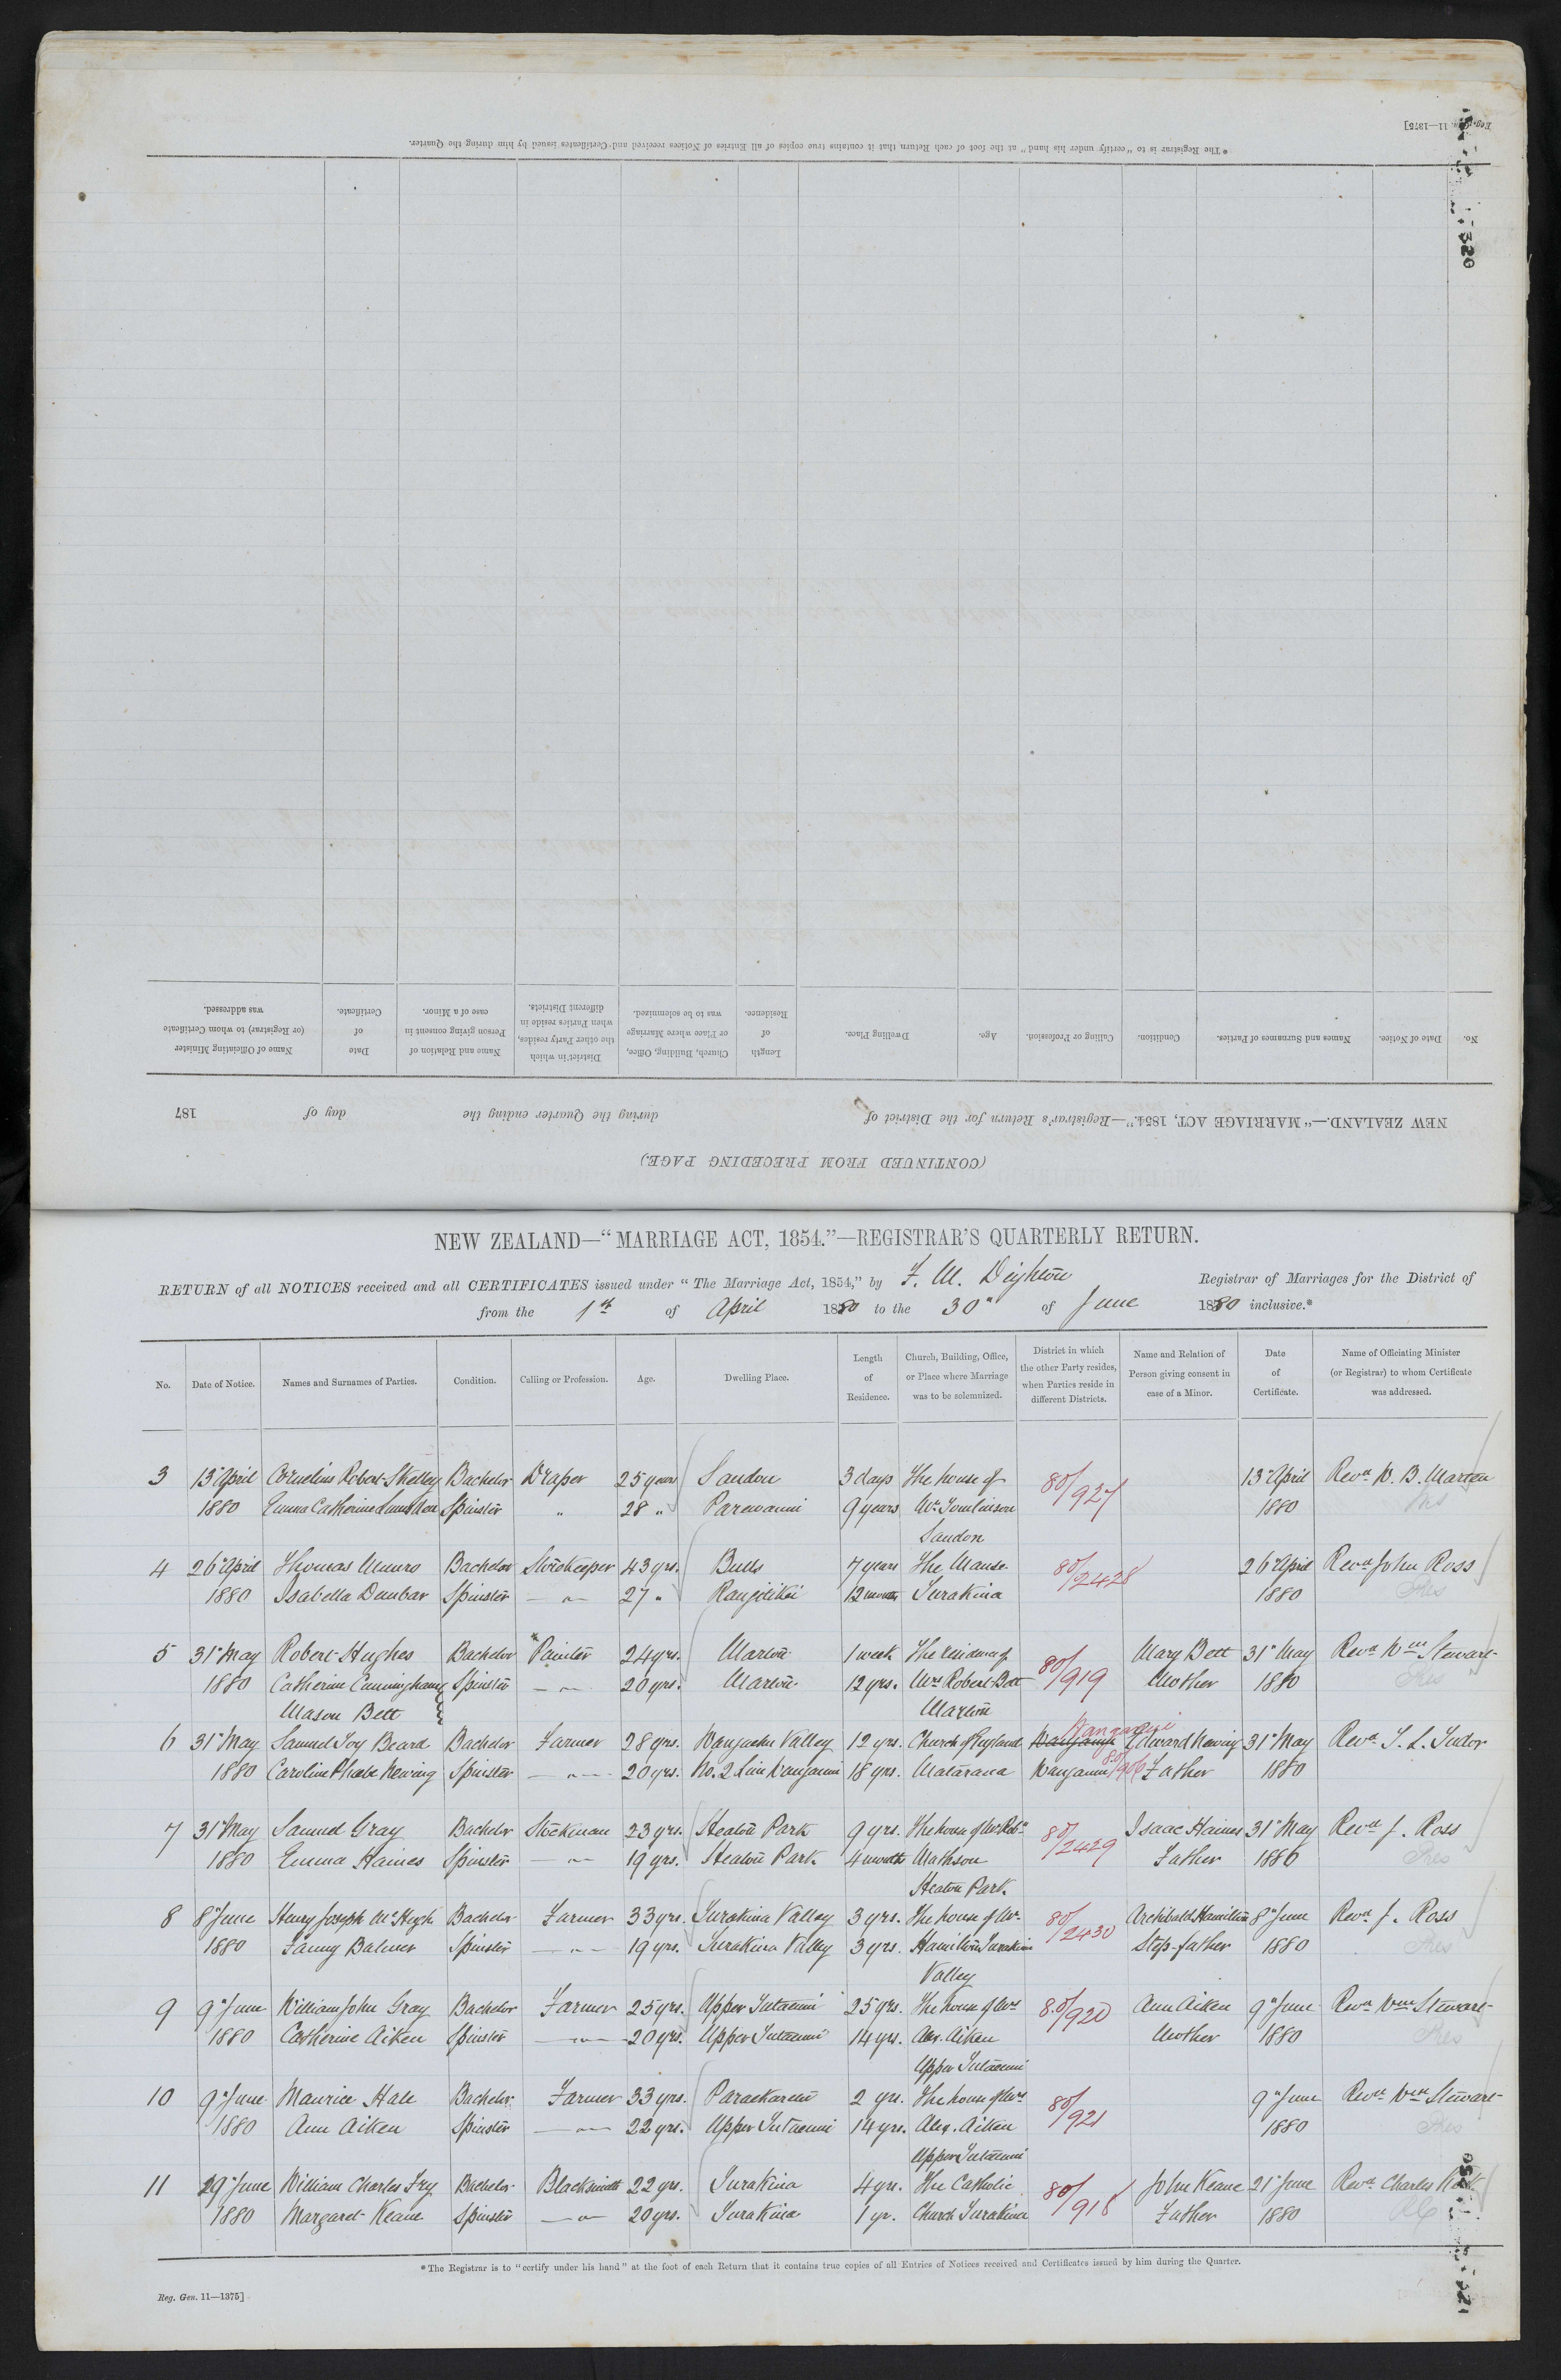 Reg. Gen. 11—1375]
* The Registrar is to "certify under his hand" at the foot of each Return that it contains true copies of all Entries of Notices received and Certificates issued by him during the Quarter.
320
No. Date of Notice. Names and Surnames of Parties. Condition. Calling or Profession. Age. Dwelling Place. Length of Residence. Church, Building, Office, or Place where Marriage was to be solemnized. District in which the other Party resides, when Parties reside in different Districts. Name and Relation of Person giving consent in case of a Minor. Date of Certificate. Name of Officiating Minister (or Registrar) to whom Certificate was addressed.
NEW ZEALAND.—"MARRIAGE ACT, 1854."—Registrar's Return for the District of during the Quarter ending the day of 187
(CONTINUED FROM PRECEDING PAGE.)
NEW ZEALAND—"MARRIAGE ACT, 1854."—REGISTRAR'S QUARTERLY RETURN.
RETURN of all NOTICES received and all CERTIFICATES issued under "The Marriage Act, 1854," by F. M. Deighton Registrar of Marriages for the District of
from the 1st of April 1880 to the 30" of June 1880 inclusive.*
No. Date of Notice. Names and Surnames of Parties. Condition. Calling or Profession. Age. Dwelling Place. Length of Residence. Church, Building, Office, or Place where Marriage was to be solemnized. District in which the other Party resides, when Parties reside in different Districts. Name and Relation of Person giving consent in case of a Minor. Date of Certificate. Name of Officiating Minister (or Registrar) to whom Certificate was addressed.
3 13" April Cornelius Robert Skelley Bachelor Draper 25 years Sandon 3 days The house of 80/927 13" April Revd W. B. Marten
1880 Emma Catherine Spinster " 28 " Parewanui 9 years Mr Tomlinson 1880 Pres
Sandon
4 26" April Thomas Munro Bachelor Storekeeper 43 yrs. Bulls 7 years The Manse 80/2428 26" April Revd John Ross
1880 Isabella Dunbar Spinster — " — 27 " Rangitikei 12 months Turakina 1880 Pres
5 31" May Robert Hughes Bachelor Painter 24 yrs. Marton 1 week The residence of 80/919 Mary Bett 31" May Revd Wm Stewart
1880 Catherine Cunningham Spinster — " — 20 yrs. Marton 12 yrs. Mrs Robert Bett Mother 1880 Pres
Mason Bett Marton
6 31" May Samuel Joy Beard Bachelor Farmer 28 yrs. Wangaehu Valley 12 yrs. Church of England Wanganui Edward Newing 31" May Revd T. L. Tudor
1880 Caroline Phoebe Newing Spinster — " — 20 yrs. No. 2 Line Wanganui 18 yrs. Matarawa Wanganui 80/906 Father 1880
7 31" May Samuel Gray Bachelor Stockman 23 yrs. Heaton Park 9 yrs. The house of Mr Robt 80/2429 Isaac Haines 31" May Revd J. Ross
1880 Emma Haines Spinster — " — 19 yrs. Heaton Park 4 months Mathson Father 1880 Pres
Heaton Park
8 8" June Henry Joseph McHugh Bachelor Farmer 33 yrs. Turakina Valley 3 yrs. The house of Mr 80/2430 Archibald Hamilton 8" June Revd J. Ross
1880 Fanny Balmer Spinster — " — 19 yrs. Turakina Valley 3 yrs. Hamilton Turakina Step-father 1880 Pres
Valley
9 9" June William John Gray Bachelor Farmer 25 yrs. Upper Tutaenui 25 yrs. The house of Mrs 80/920 Ann Aiken 9" June Revd Wm Stewart
1880 Catherine Aiken Spinster — " — 20 yrs. Upper Tutaenui 14 yrs. Alex. Aiken Mother 1880 Pres
Upper Tutaenui
10 9" June Maurice Hale Bachelor Farmer 33 yrs. Paraekaretu 2 yrs. The house of Mrs 80/921 9" June Revd Wm Stewart
1880 Ann Aiken Spinster — " — 22 yrs. Upper Tutaenui 14 yrs. Alex. Aiken 1880 Pres
Upper Tutaenui
11 19" June William Charles Fry Bachelor Blacksmith 22 yrs. Turakina 4 yrs. The Catholic 80/918 John Keane 21" June Revd Charles Kirk
1880 Margaret Keane Spinster — " — 20 yrs. Turakina 1 yr. Church Turakina Father 1880 RC
* The Registrar is to "certify under his hand" at the foot of each Return that it contains true copies of all Entries of Notices received and Certificates issued by him during the Quarter.
Reg. Gen. 11—1375]
321